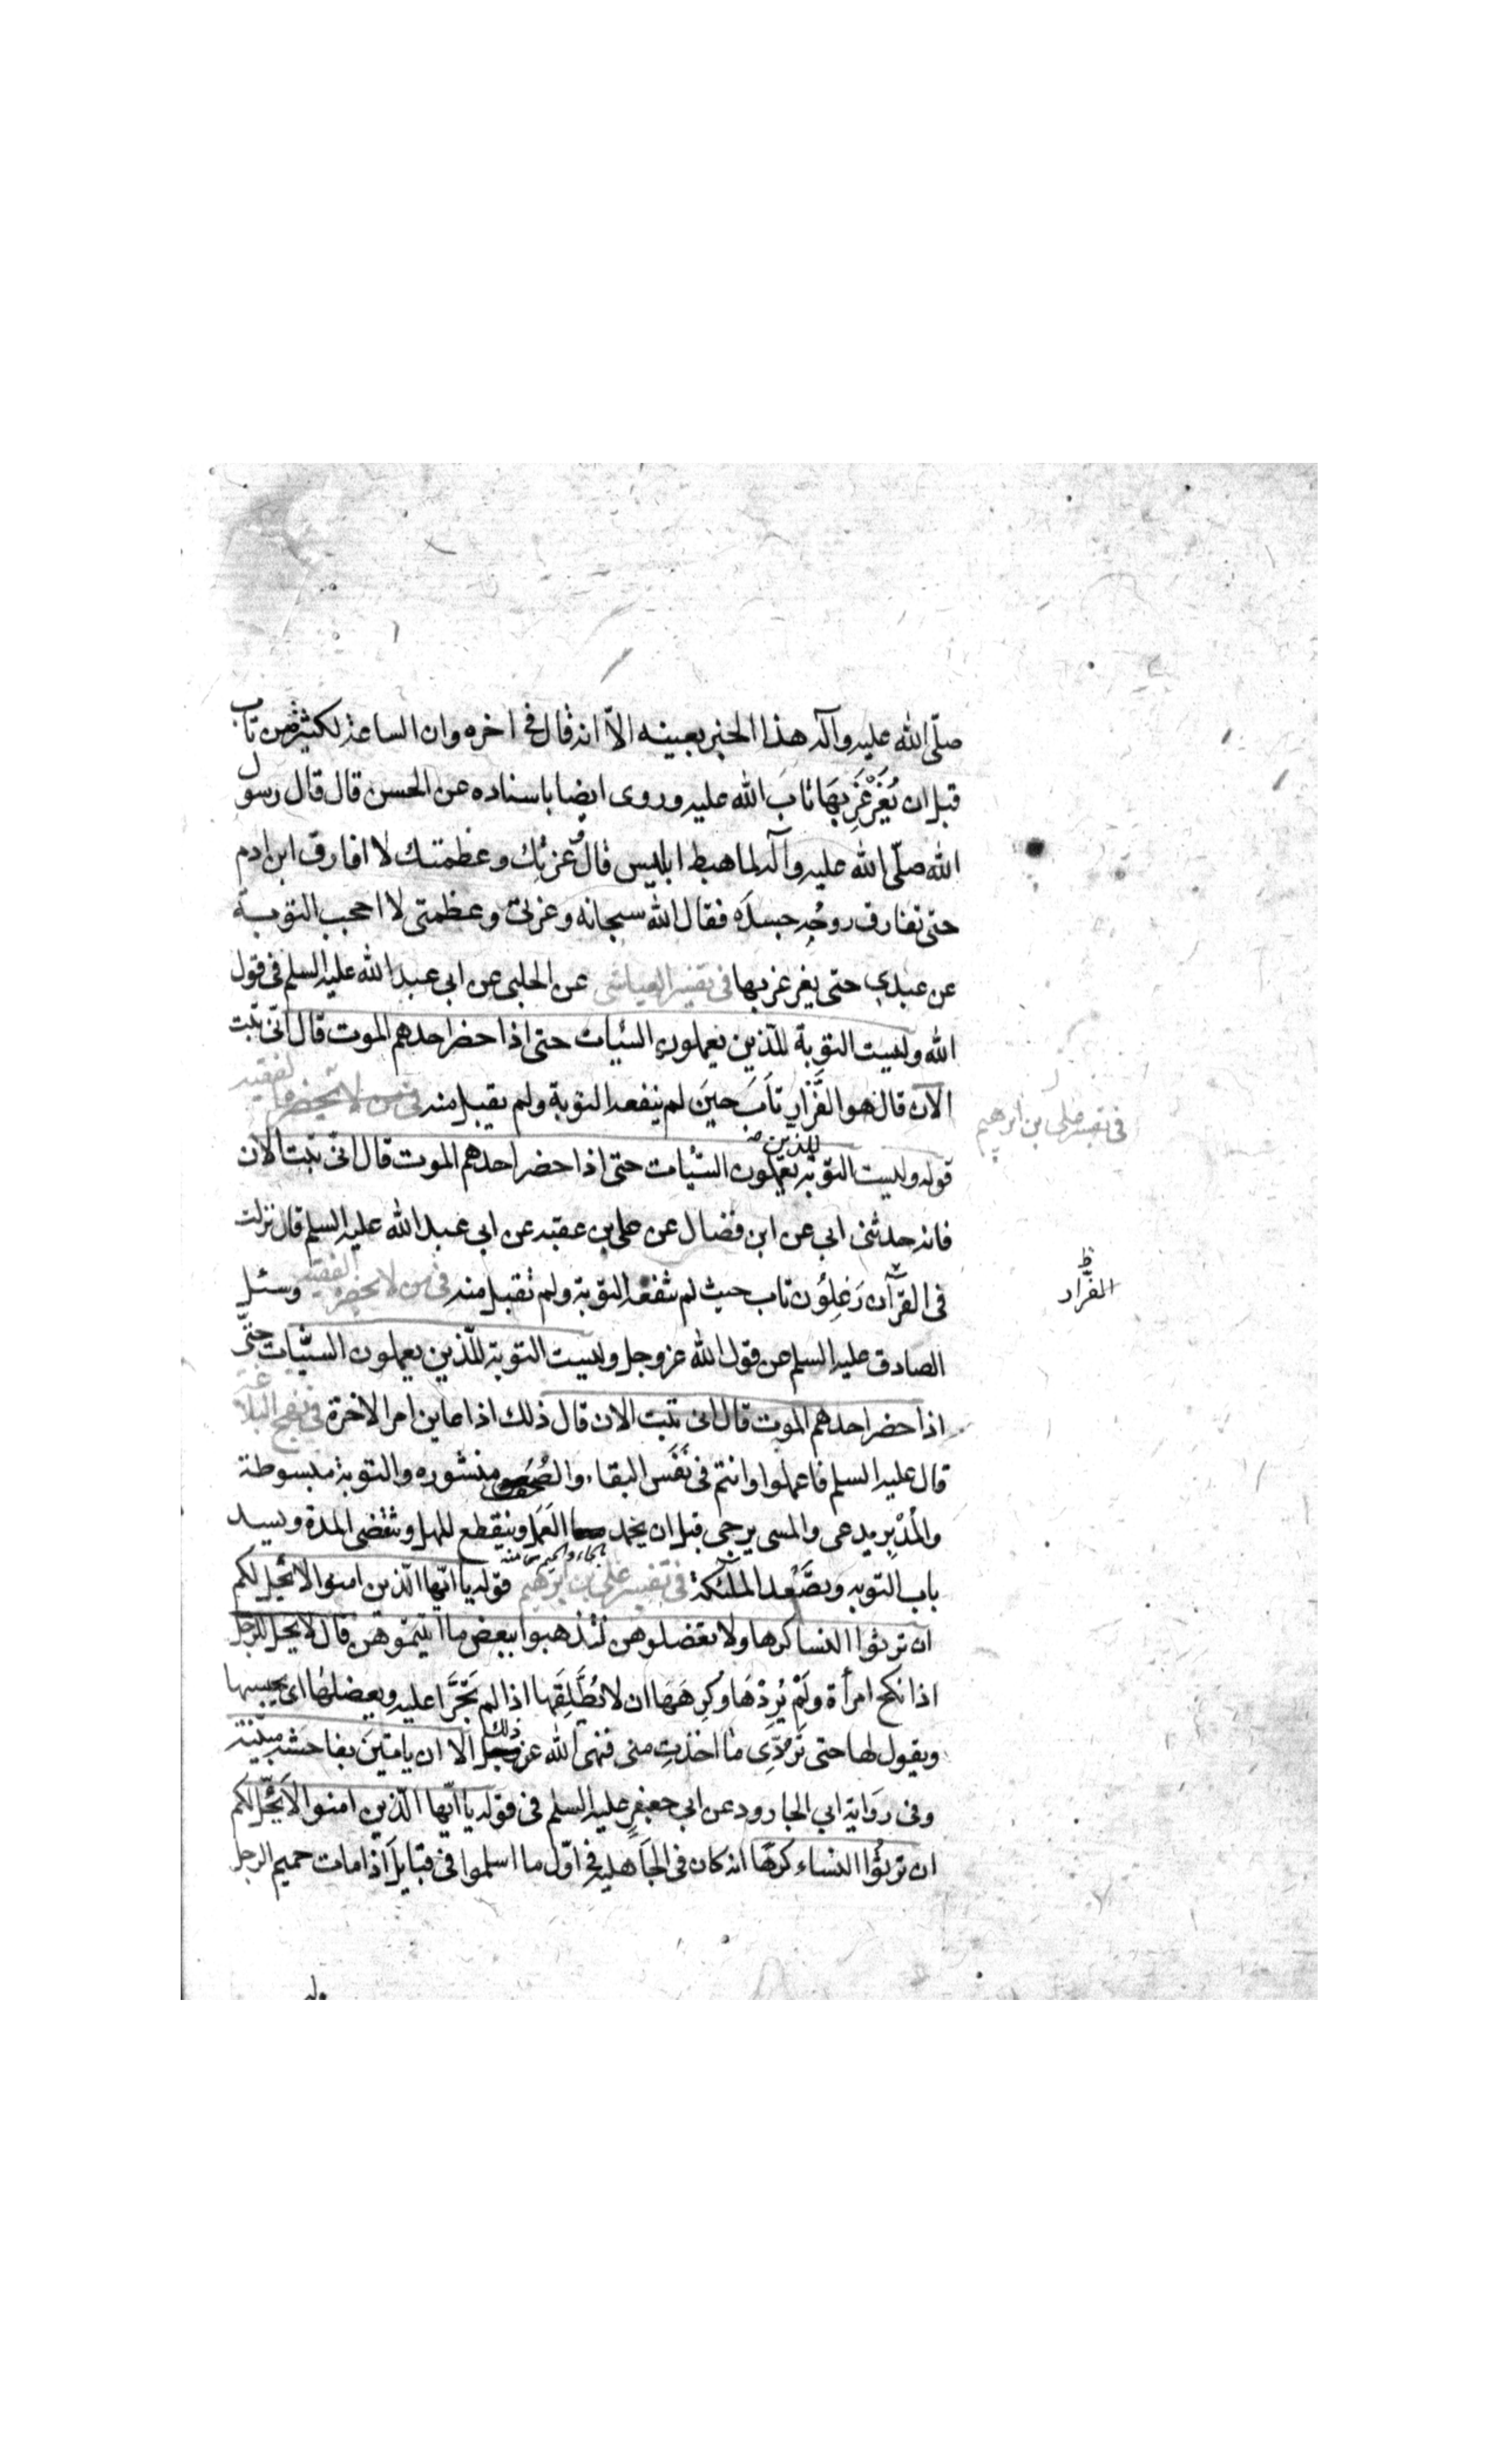 صلّى الله عليه وآله هذا الخبر بعينه الاّ انه قال فى اخره وان الساعة لكثيرة من تاب
قبل ان يُغَرْغَرِ بهَا تابَ الله عليه وروى ايضا باسناده عن الحسن قال قال رسول
الله صلّى الله عليه وآله لما هبط ابليس قال وعزتك وعظمتك لا افارق ابن ادم
حتى تفارق روحُه جسدَه فقال الله سبحانه وعزتى وعظمتى لا احجب التوبة
عن عبدي حتى يغرغر بها فى تفسير العياشى عن الحلبى عن ابى عبد الله عليه السلم فى قول
الله وليست التوبة للّذين يعملون السّيات حتى اذا حضر احدهم الموت قال انّى تبت
الان قال هو الفَّرَّار تَابَ حينَ لم ينفعه التوبة ولم يقبل منه فى من لا يحضره الفقيه
فى تفسير على بن ابرهيم
قوله وليست التوبة للذين يعملون السّيّات حتى اذا حضر احدهم الموت قال انّى تبت الان
فانه حدثنى ابى عن ابن فضال عن على بن عقبه عن ابى عبد الله عليه السلم قال نزلت
فى القرآن زعلون تاب حيث لم تنفعه التوبة ولم تقبل منه فى من لا يحضره الفقيه وسئل
الفرّار ظ
الصادق عليه السلم عن قول الله عز وجل وليست التوبة للّذين يعملون السّيّات حتّى
اذا حضر احدهم الموت قال انى تبت الان قال ذلك اذا عاين امر الاخرة فى نهج البلاغة
قال عليه السلم فاعملوا وانتم فى نَفَس البقاء والصُحف منشوره والتوبة مبسوطة
والمُدْبِر يدعى والمسى يرجى قبل ان يخمد العَمَل وينقطع المهل وتنقضى المدة ويسد
باب التوبه ويصَّعْد الملئكة فى تفسير على بن ابرهيم قوله يا ايّها الّذين امنوا لا يحلّ لكم
ان ترثوا النسا كرها ولا تعضلوهن لتذهبوا ببعض ما اتيتموهنّ قال لا يحل للرجل
اذا نكح امرأة ولَمْ يُرِدْهَا وكرِهَهَا ان لا يُطَلِّقَها اذا لم تَجْرَ عليه ويعضلها اى يحبسها
ويقول لها حتى تَرُدّى ما اخذتِ منى فنهى الله عن ذلك الا ان ياتينَ بفاحشه مبيّنة
وفى رواية ابى الجارود عن ابى جعفر عليه السلم فى قوله يا ايّها الّذين امنوا لا يحلّ لكم
ان ترثُوا النساء كرهًا انه كان فى الجَاهليه فى اوّل ما اسلموا فى قبايل اذا مات حميم الرجل